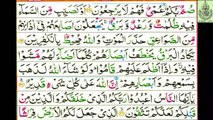 صُمٌّۢ بُكْمٌ عُمْىٌ فَهُمْ لَا يَرْجِعُوْنَ اَوْ كَصَيِّبٍ مِّنَ السَّمَآءِ
فِيْهِ ظُلُمٰتٌ وَّرَعْدٌ وَّبَرْقٌ يَجْعَلُوْنَ اَصَابِعَهُمْ فِىْٓ اٰذَانِهِمْ
مِّنَ الصَّوَاعِقِ حَذَرَ الْمَوْتِ وَاللّٰهُ مُحِيْطٌۢ بِالْكٰفِرِيْنَ
يَكَادُ الْبَرْقُ يَخْطَفُ اَبْصَارَهُمْ كُلَّمَآ اَضَآءَ لَهُمْ مَّشَوْا
فِيْهِ وَاِذَآ اَظْلَمَ عَلَيْهِمْ قَامُوْا وَلَوْ شَآءَ اللّٰهُ لَذَهَبَ
بِسَمْعِهِمْ وَاَبْصَارِهِمْ اِنَّ اللّٰهَ عَلٰى كُلِّ شَىْءٍ قَدِيْرٌ
يٰٓاَيُّهَا النَّاسُ اعْبُدُوْا رَبَّكُمُ الَّذِىْ خَلَقَكُمْ وَالَّذِيْنَ مِنْ
قَبْلِكُمْ لَعَلَّكُمْ تَتَّقُوْنَ الَّذِىْ جَعَلَ لَكُمُ الْاَرْضَ فِرَاشًا